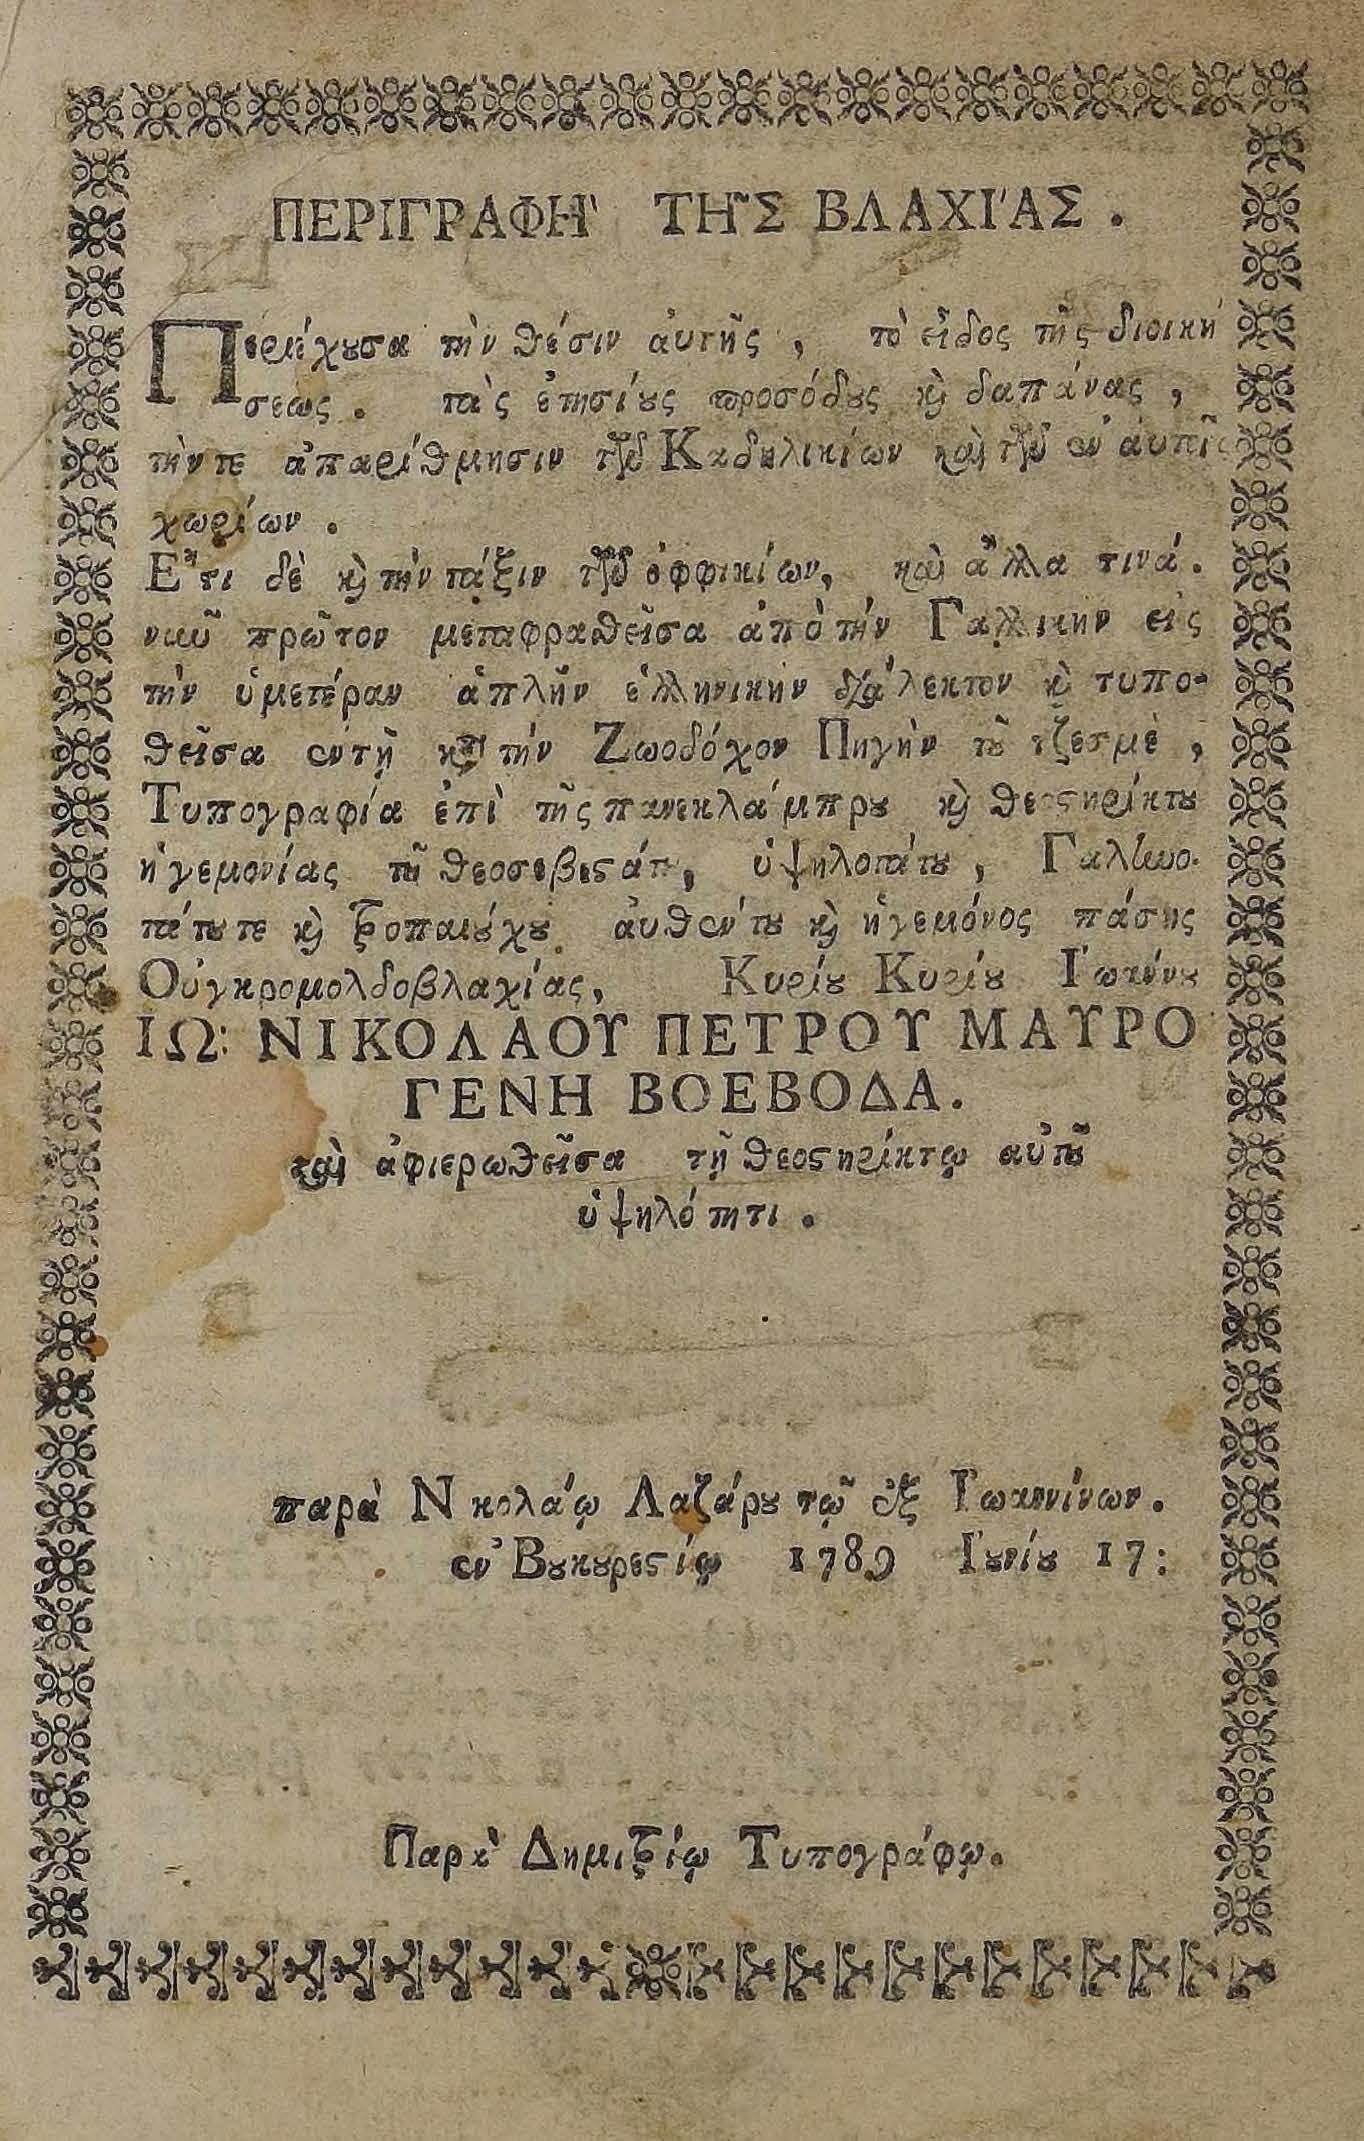 ΠΕΡΙΓΡΑΦῊ ΤΗ͂Σ ΒΛΑΧΙ΄ΑΣ.
Περιέχουσα τὴν θέσιν ἀυτῆς, τὸ εἶδος τῆς διοική
σεως. τὰς ἐτησίους προσόδους κὶ δαπάνας,
τήντε ἀπαρίθμησιν τῶν Καδηλικίων καὶ τῶν ἐν ἀυτοῖς
χωρίων.
Ἔτι δὲ κὶ τὴν τάξιν τῶν ὀφφικίων, καὶ ἄλλα τινά.
νιῦ πρῶτον μεταφρασθεῖσα ἀπὸ τὴν Γαλλικὴν εἰς
τὴν ὑμετέραν ἁπλῆν ἑλληνικὴν διάλεκτον κὶ τυπο-
θεῖσα ἐν τῇ κατὰ τὴν Ζωοδόχον Πηγὴν τοῦ τζεσμὲ,
Τυπογραφία ἐπὶ τῆς πανεκλάμπρου κὶ θεοστηρίκτου
ἡγεμονίας τοῦ θεοσεβεστάτου, ὑψηλοτάτου, Γαλίωο-
τάτουτε κὶ τροπαιούχου ἀυθέντου κὶ ἡγεμόνος πάσης
Οὐγκρομολδοβλαχίας, Κυρίου Κυρίου Ἰωάννου
ΙΩ: ΝΙΚΟΛΑΟΥ ΠΕΤΡΟΥ ΜΑΥΡΟ
ΓΕΝΗ ΒΟΕΒΟΔΑ.
καὶ ἀφιερωθεῖσα τῇ θεοστηρίκτῳ αὐτοῦ
ὑψηλότητι.
παρὰ Νικολάῳ Λαζάρου τῷ ἐξ Ἰωαννίνων.
ἐν Βουκουρεστίῳ 1789 Ἰουνίου 17:
Παρὰ Δημιτρίῳ Τυπογράφῳ.